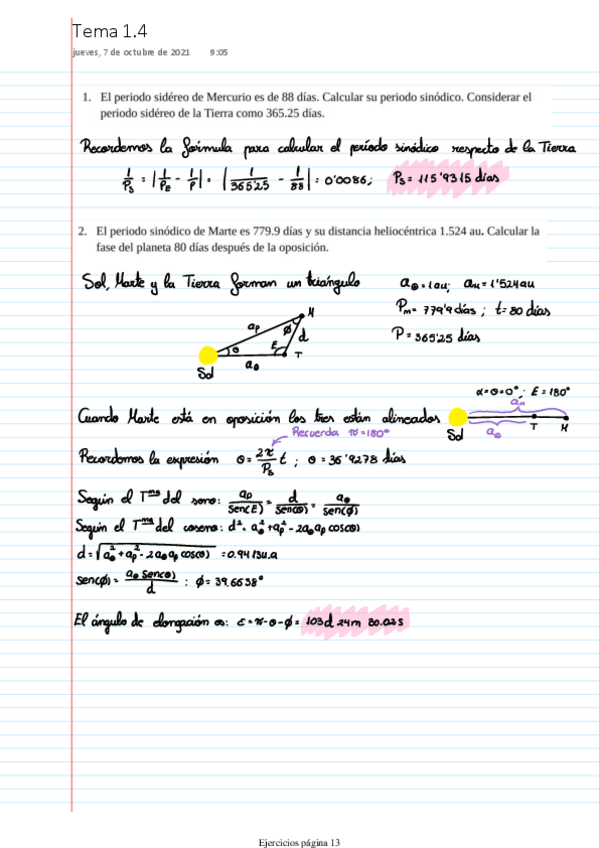 Tema 1.4
jueves, 7 de octubre de 2021 9:05
1. El periodo sidéreo de Mercurio es de 88 días. Calcular su periodo sinódico. Considerar el
periodo sidéreo de la Tierra como 365.25 días.
Recordemos la fórmula para calcular el período sinódico respecto de la Tierra
1/Ps = |1/PE - 1/P| = |1/365'25 - 1/88| = 0'0086; Ps = 115'9315 días
2. El periodo sinódico de Marte es 779.9 días y su distancia heliocéntrica 1.524 au. Calcular la
fase del planeta 80 días después de la oposición.
Sol, Marte y la Tierra forman un triángulo
a⊕ = 1au; aM = 1'524au
Pm = 779'9 días; t = 80 días
P = 365'25 días
M
ap
φ
d
θ
E
T
a⊕
Sol
α=θ=0°; E=180°
Cuando Marte está en oposición los tres están alineados
am
a⊕
Sol
T
M
Recuerda π=180°
Recordemos la expresión θ = 2π/Ps t; θ = 36'9278 días
Según el Tma del seno: ap/sen(E) = d/sen(θ) = a⊕/sen(φ)
Según el Tma del coseno: d² = a⊕² + ap² - 2a⊕ap cos(θ)
d = √(a⊕² + ap² - 2a⊕ap cos(θ)) = 0.9413u.a
sen(φ) = a⊕ sen(θ)/d : φ = 39.6638°
El ángulo de elongación es: ε = π-θ-φ = 103d 24m 30.02s
Ejercicios página 13